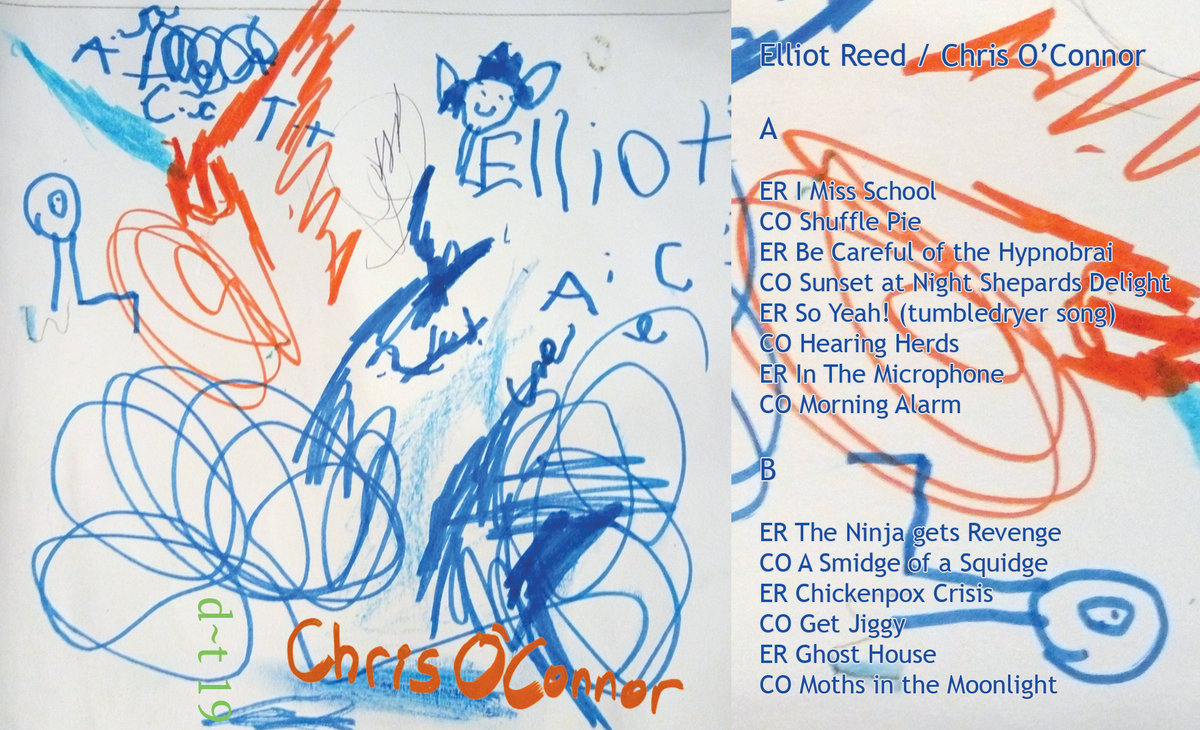 Elliot
A:C
d~t 19
Chris O'Connor
Elliot Reed / Chris O'Connor
A
ER I Miss School
CO Shuffle Pie
ER Be Careful of the Hypnobrai
CO Sunset at Night Shepards Delight
ER So Yeah! (tumbledryer song)
CO Hearing Herds
ER In The Microphone
CO Morning Alarm
B
ER The Ninja gets Revenge
CO A Smidge of a Squidge
ER Chickenpox Crisis
CO Get Jiggy
ER Ghost House
CO Moths in the Moonlight